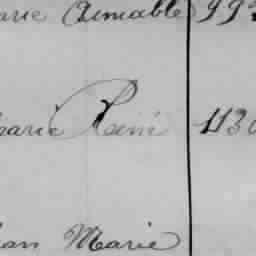 arie Aimable 992
marie René 1130
ean Marie